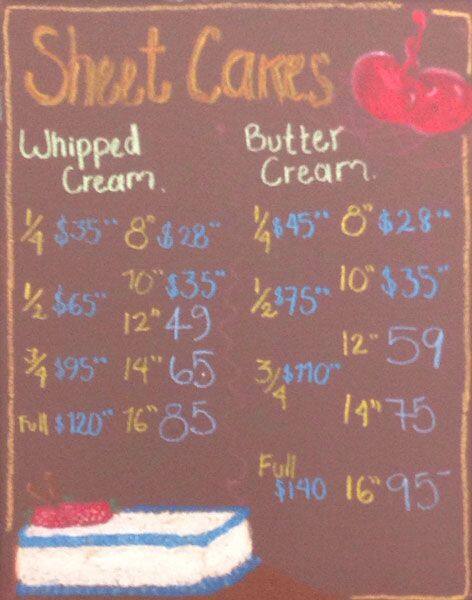 Sheet Cakes
Whipped
Cream.
1/4 $35" 8" $28"
1/2 $65" 10" $35"
12" 49
3/4 $95" 14" 65
Full $120" 16" 85
Butter
Cream.
1/4 $45" 8" $28"
1/2 $75" 10" $35"
12" 59
3/4 $110"
14" 75
Full
$140 16" 95